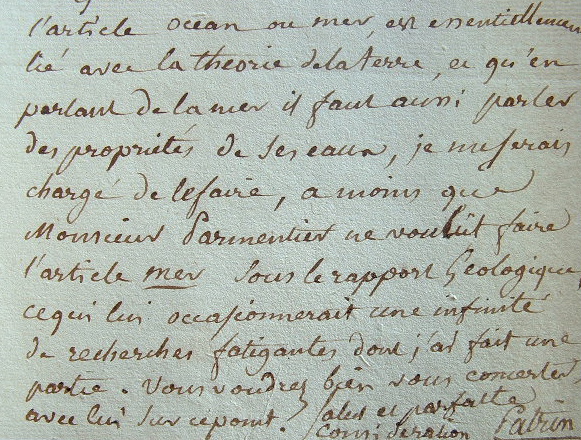 l'article océan ou mer, est essentiellement
lié avec la théorie de la terre, et qu'en
parlant de la mer il faut aussi parler
des propriétés de ses eaux, je me serais
chargé de le faire, a moins que
Monsieur Parmentier ne voulût faire
l'article mer sous le rapport Géologique,
ce qui lui occasionnerait une infinité
de recherches fatigantes dont j'ai fait une
partie. Vous voudrez bien vous concerter
avec lui sur ce point. et parfaite
considération Patrin